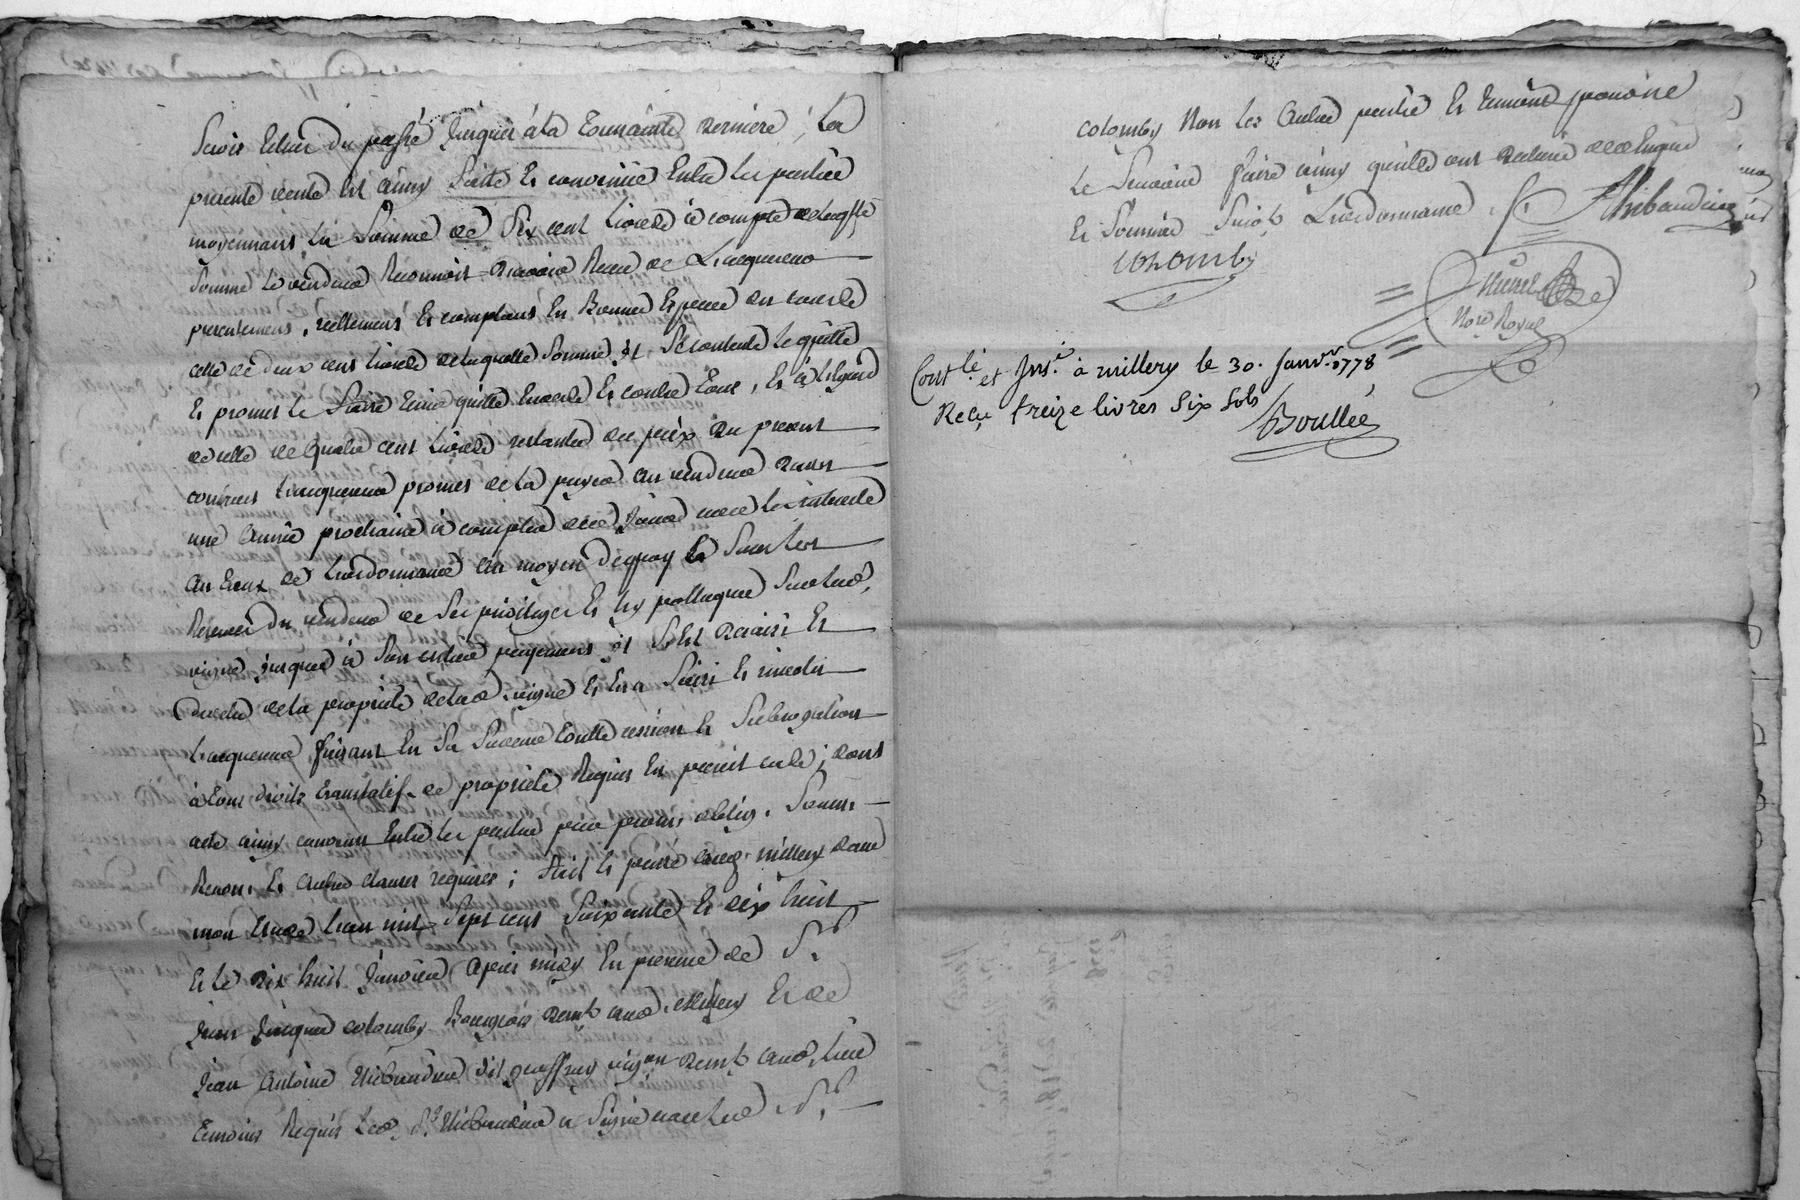 Servis Echus du passé jusques à la Toussainte derniere ; La
presente vente Est ainsy faitte Et convenüe Entre les parties
moyennant la Somme de Six cent Livres à compte de laqlle
Somme le vendeur Reconnoit avoir Receu de L'acquereur
presentement, réellement Et comptant En Bonnes Especes du cours
celle de deux cens Livres de laquelle Somme il Se contente le quitte
Et promet le faire tenir quitte Envers Et contre tous, Et à l'Egard
de celle de quatre cent Livres restantes du prix du present
contract L'acquereur promet de la payer au vendeur dans
une année prochaine à compter de ce jour avec les interets
au taux de L'ordonnance au moyen de quoy Et Sous les
Reserves du vendeur de Ses privileges Et hypotheques Sur lad.
vigne jusques à Son entier payement il S'est devaisi Et
devetu de la propriété de lad. vigne Et En a Saisi Et investi
L'acquereur faisant En Sa faveur toutte cession Et Subrogation
à tous droits translatifs de propriété Requis En pareil cas ; dont
acte ainsy convenu Entre les parties peine promis. oblig. Soum.
Renon. Et autres clauses requises ; fait Et passé aud. millery dans
mon Etude L'an mil Sept cent Soixante Et dix huit
Et le dix huit janvier après midy En presence de Sr.
jean jacques colomby Bourgeois demt. aud. millery Et de
jean Antoine thibaudier dit vigon demt. aud. lieu
temoins Requis Led. Sr. thibaudier a Signé avec led. Sr.
colomby Non les autres parties Et temoins pour ne
le Sçavoir faire ainsy qu'ils ont declaré de ce Enquis
Et Sommés Suivt. L'ordonnance. Thibaudier
colomby
Nore Royal
Contlé. et Insé. à millery le 30. Janvr. 1778
Reçu treize livres Six Sols
Boullée